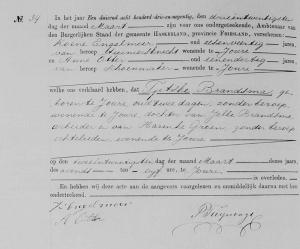 № 34
In het jaar Een duizend acht honderd drie-en-negentig, den drieentwintigsten
dag der maand Maart, zijn voor ons ondergeteekende, Ambtenaar van
den Burgerlijken Stand der gemeente HASKERLAND, provincie FRIESLAND, verschenen:
Engelsmeer, oud jaren,
van beroep wonende te Joure
en Anne Otter, oud jaren,
van beroep Schoenmaker, wonende te Joure
welke ons verklaard hebben, dat Tjitske Brandsma, ge-
boren te Joure, oud twee dagen, zonder beroep,
wonende te Joure, dochter van Jelle Brandsma,
arbeider, en van zonder beroep
echtelieden, wonende te Joure
op den tweeentwintigsten dag der maand Maart dezes jaars,
des avonds ten elf ure, te Joure
is overleden.
En hebben wij deze acte aan de aangevers voorgelezen en onmiddellijk daarna met hen
onderteekend.
A Otter